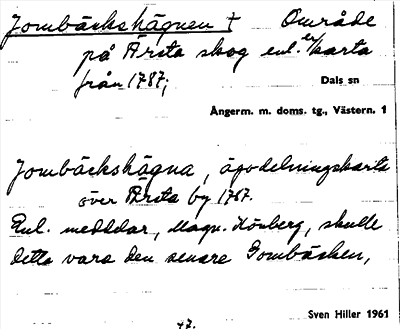 Jombäckshägnen † Område
på Årsta skog enl. en karta
från 1787;
Dals sn
Ångerm. m. doms. tg., Västern. 1
Jombäckshägna, ägodelningskarta
över Årsta by 1767.
Enl. meddelar, Magn. Hörberg, skulle
detta vara den senare Gombäcken,
Sven Hiller 1961
47.